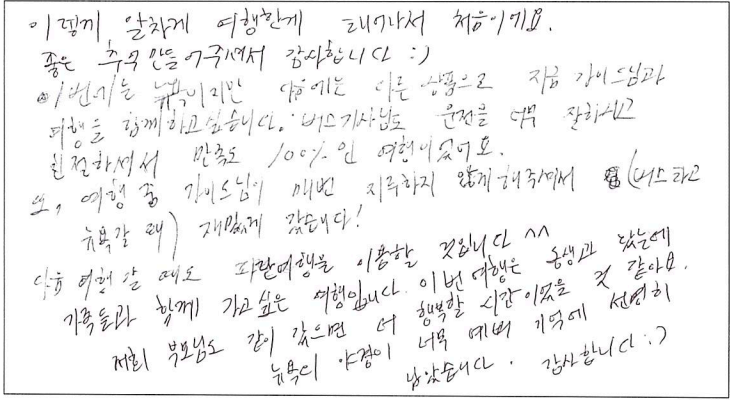 이렇게 알차게 여행한게 태어나서 처음이에요.
좋은 추억 만들어주셔서 감사합니다 :)
이번에는 뉴욕이지만 다음에는 다른 상품으로 지금 가이드님과
여행을 함께하고싶습니다. 버스기사님도 운전을 너무 잘하시고
친절하셔서 만족도 100%인 여행이었어요.
또, 여행 중 가이드님이 매번 지루하지 않게 해주셔서 (버스타고
뉴욕갈 때) 재밌게 갔습니다!
다음 여행 갈 때도 파란여행을 이용할 것입니다 ^^
가족들과 함께 가고 싶은 여행입니다. 이번 여행은 동생과 왔는데
저희 부모님도 같이 갔으면 더 행복할 시간이었을 것 같아요.
뉴욕의 야경이 너무 예뻐 기억에 선연히
남았습니다. 감사합니다 :)